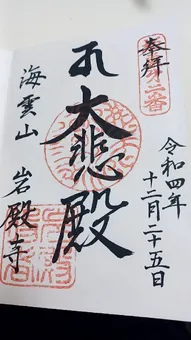 奉拝
第二番
令和四年
十二月二十五日
大悲殿
海雲山
岩殿寺